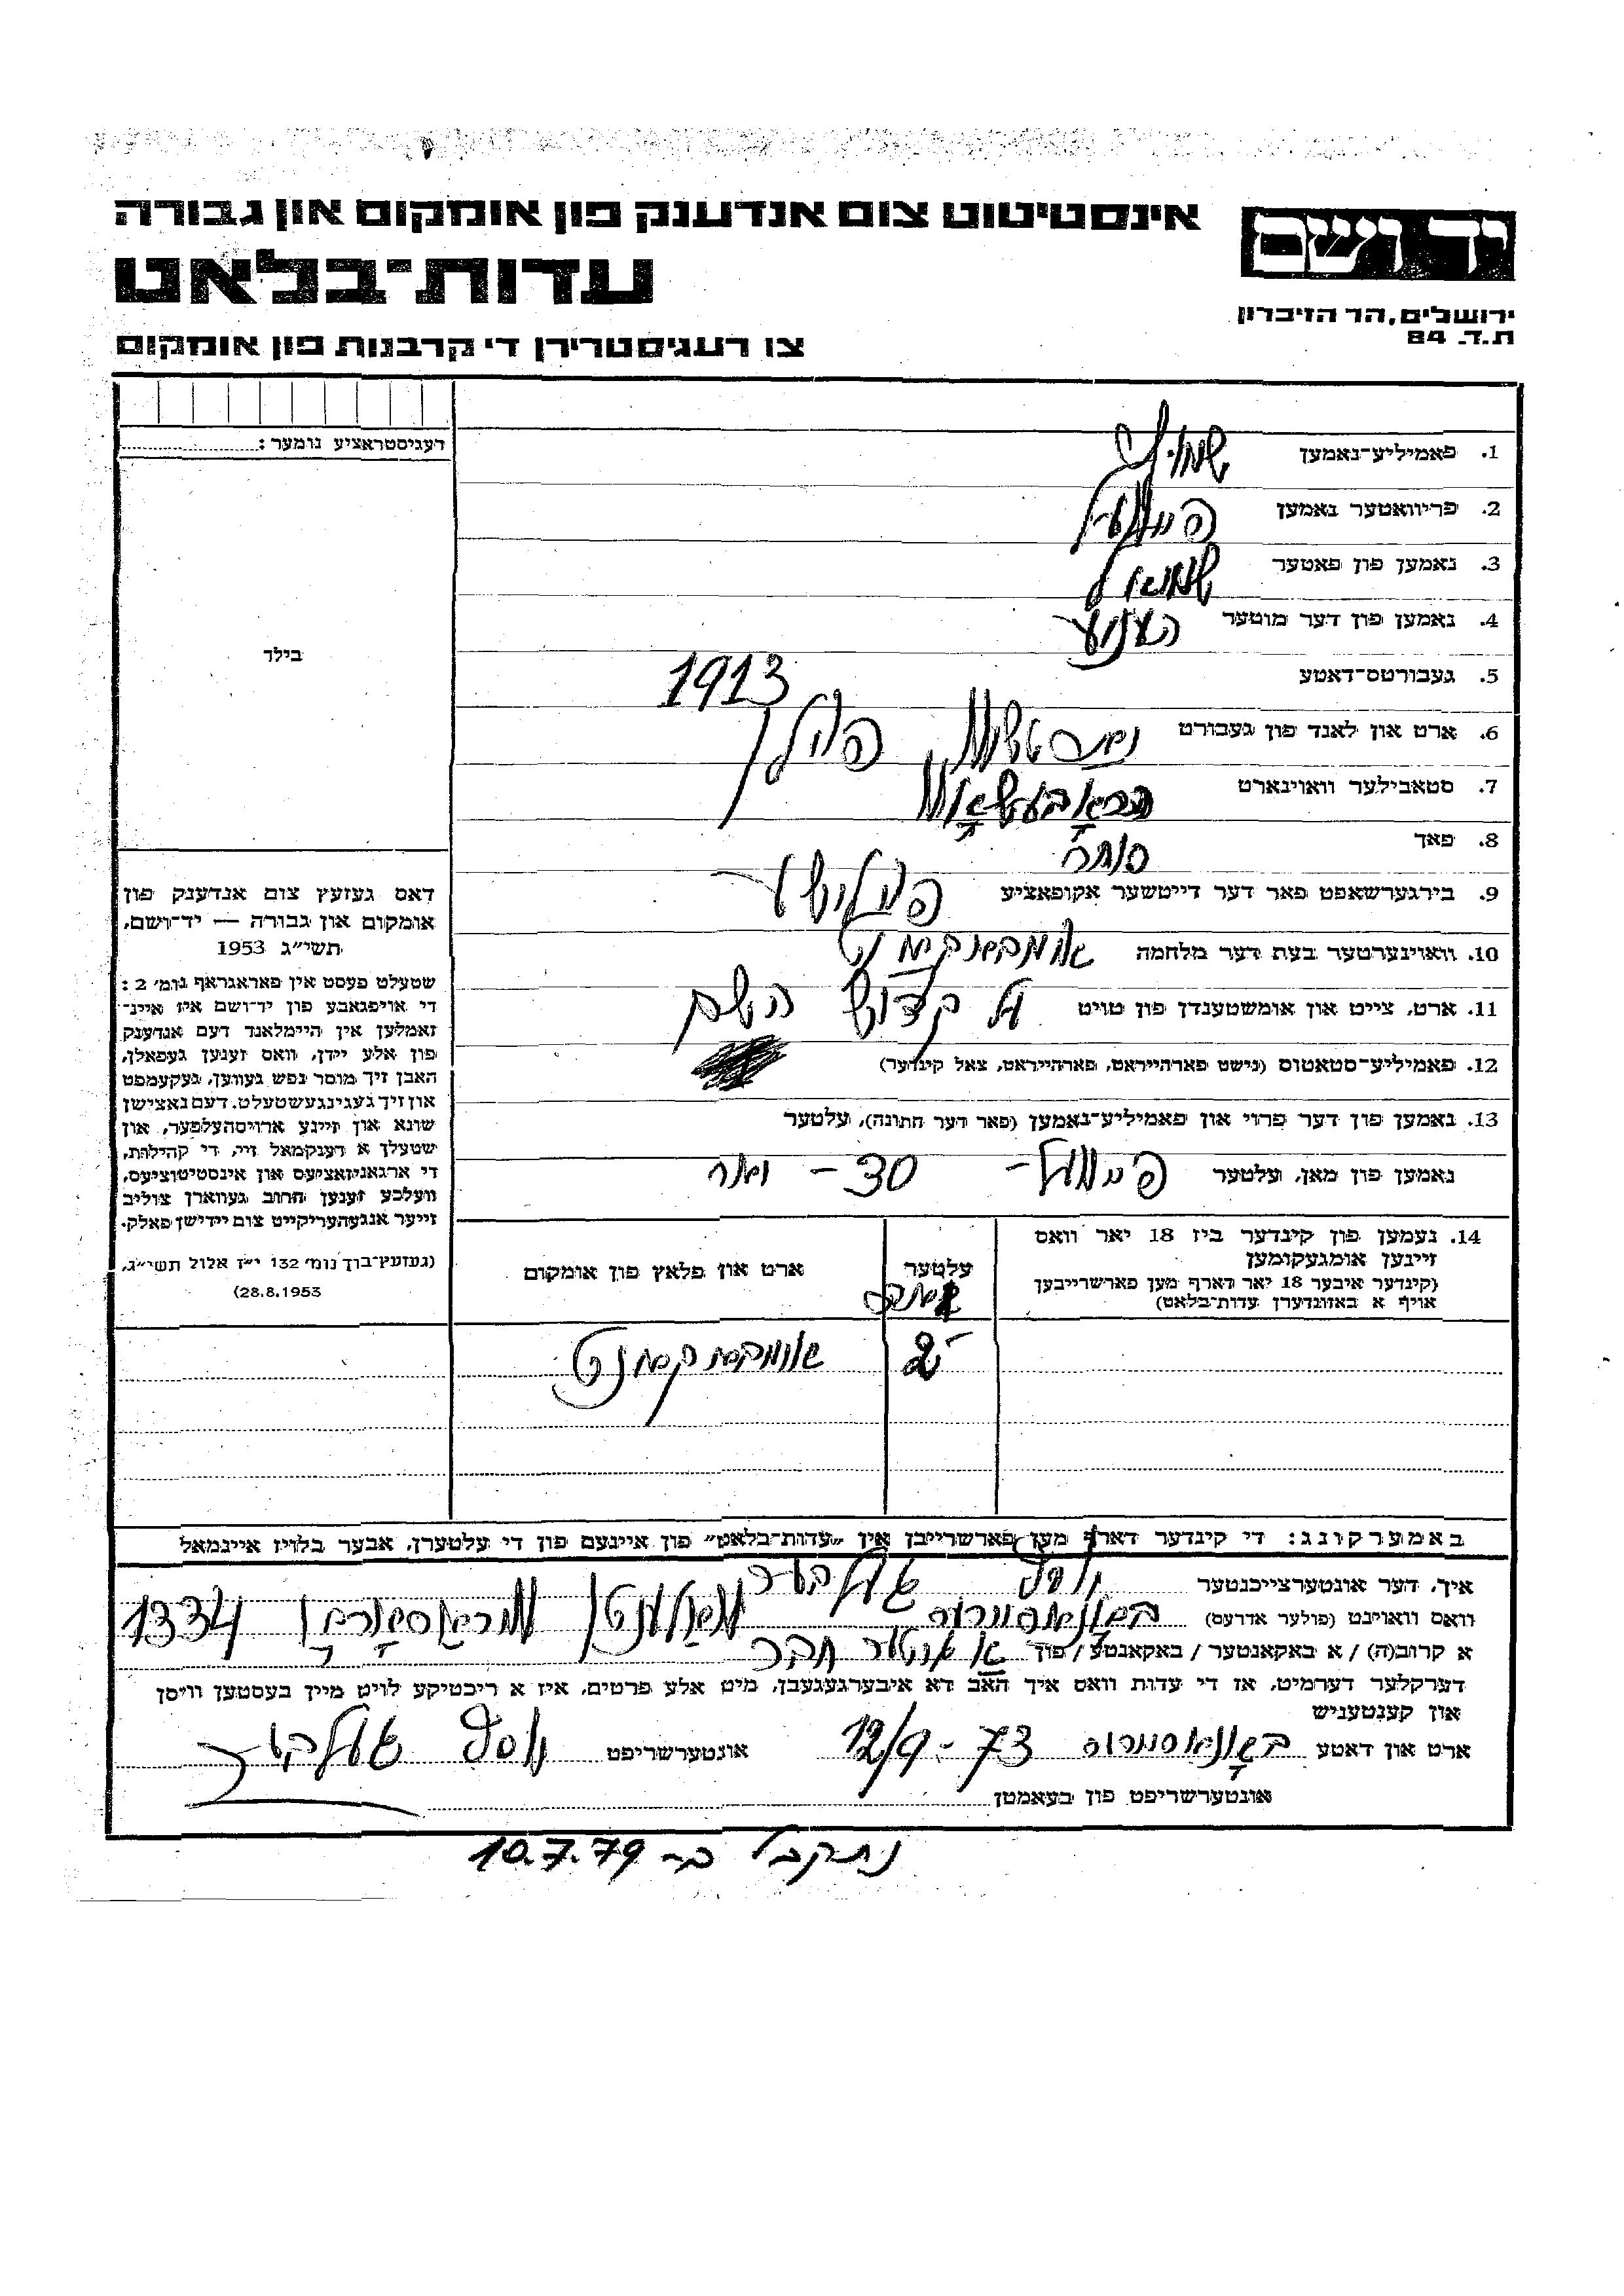 יד ושם
אינסטיטוט צום אנדענק פון אומקום און גבורה
עדות-בלאט
צו רעגיסטרירן די קרבנות פון אומקום
ירושלים, הר הזיכרון
ת.ד. 84
רעגיסטראציע נומער:
בילד
דאס געזעץ צום אנדענק פון
אומקום און גבורה — יד-ושם,
תשי"ג 1953
שטעלט פעסט אין פאראגראף נומ' 2:
די אויפגאבע פון יד-ושם איז איינ-
זאמלען אין היימלאנד דעם אנדענק
פון אלע יידן, וואס זענען געפאלן,
האבן זיך מוסר נפש געווען, געקעמפט
און זיך געגינגעשטעלט. דעם נאצישן
שונא און זיינע ארויסהעלפער, און
שטעלן א דענקמאל זיי, די קהילות,
די ארגאניזאציעס און אינסטיטוציעס,
וועלכע זענען חרוב געווארן צוליב
זייער אנגעהעריקייט צום יידישן פאלק.
(געזעץ-בוך נומ' 132 י"ז אלול תשי"ג,
28.8.1953)
1. פאמיליע-נאמען
2. פריוואטער נאמען
3. נאמען פון פאטער שמואל
4. נאמען פון דער מוטער
5. געבורטס-דאטע 1913
6. ארט און לאנד פון געבורט פוילן
7. סטאבילער וואוינארט
8. פאך סוחר
9. בירגערשאפט פאר דער דייטשער אקופאציע פוילישע
10. וואוינערטער בעת דער מלחמה אומבאקאנט
11. ארט, צייט און אומשטענדן פון טויט על קדוש השם
12. פאמיליע-סטאטוס (נישט פארהייראט, פארהייראט, צאל קינדער)
13. נאמען פון דער פרוי און פאמיליע-נאמען (פאר דער חתונה), עלטער
נאמען פון מאן, עלטער 30 – יאר
14. נעמען פון קינדער ביז 18 יאר וואס
זיינען אומגעקומען
(קינדער איבער 18 יאר דארף מען פארשרייבן
אויף א באזונדערן עדות-בלאט)
עלטער
ארט און פלאץ פון אומקום
2 אומבאקאנט
באמערקונג: די קינדער דארף מען פארשרייבן אין „עדות-בלאט" פון איינעם פון די עלטערן, אבער בלויז איינמאל
איך, דער אונטערצייכנטער יוסף
וואס וואוינט (פולער אדרעס) 1334
א קרוב(ה) / א באקאנטער / באקאנטע / פון חבר
דערקלער דערמיט, אז די עדות וואס איך האב דא איבערגעגעבן, מיט אלע פרטים, איז א ריכטיקע לויט מיין בעסטען וויסן
און קענטעניש
ארט און דאטע 12/9-73 אונטערשריפט יוסף
אונטערשריפט פון באאמטן
נתקבל ב- 10.7.79